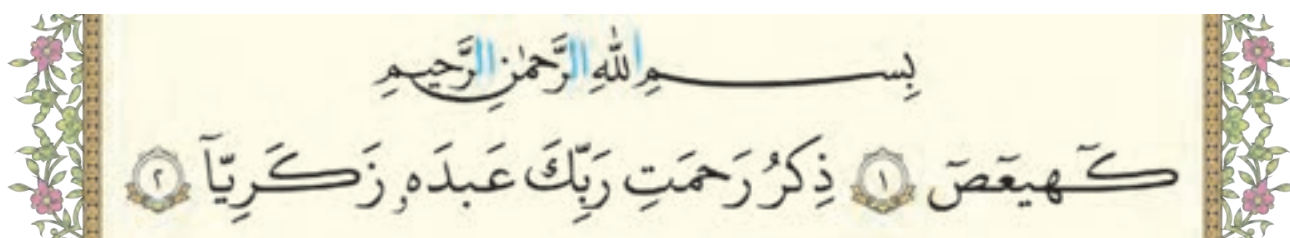 بِســـمِ اللّٰهِ الرَّحمٰنِ الرَّحيمِ
كٓهيعٓصٓ ﴿١﴾ ذِكرُ رَحمَتِ رَبِّكَ عَبدَهٗ زَكَرِيّآ ﴿٢﴾